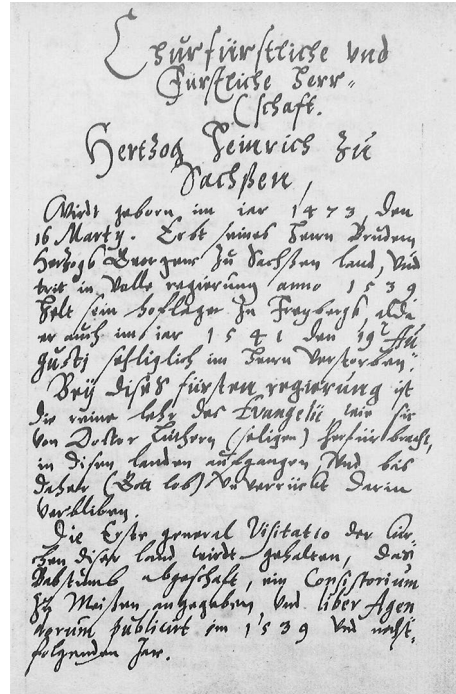 Churfürstliche vnd
Fürstliche Herr„
schafft.
Hertzog Heinrich zu
Sachßen,
Wirdt geborn im iar 1473, den
16 Marty. Erbt seines Herrn Brudern
Hertzogs Georgens zu Sachßen land, vnd
trit in Volle regierung anno 1539
Helt sein hoflager zu Freybergk alda
er auch im iar 1541 den 19t Au
gusti sehliglich im Herrn verstorben.
Beÿ dises fürsten regierung ist
die reine lehr des Evangelii wie sie
von Doctor Luthern (seligen) herfürbracht,
in disen landen aufgangen Vnd bis
daher (Gott lob) vnverrückt darin
verbliben.
Die Erste general Visitatio der kir„
chen diser land wirdt gehalten, das
Babstumb abgeschaft, ein Consistorium
zu Meissen angegeben, vnd liber Agen
dorum publicirt im 1539 vnd nechst„
folgenden Jar.